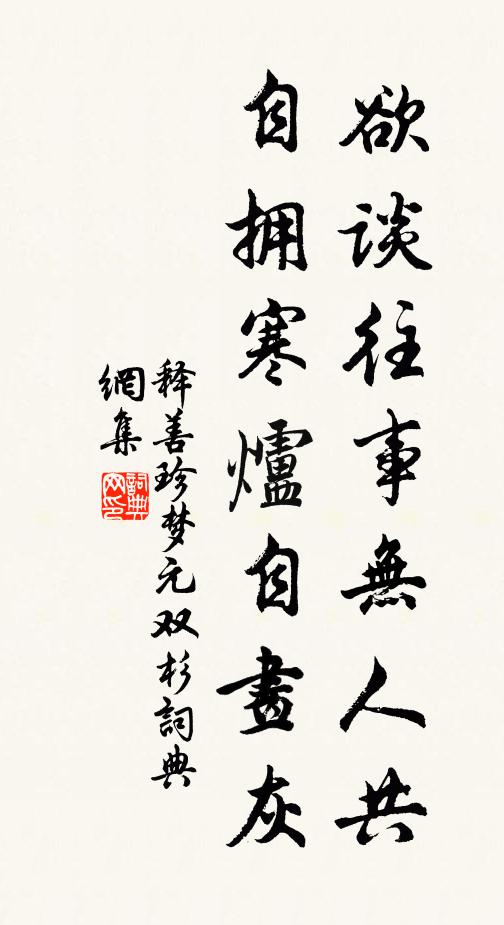 欲谈往事無人共
自拥寒爐自畫灰
释善珍梦元双杉詞典
網集
詞典
网印